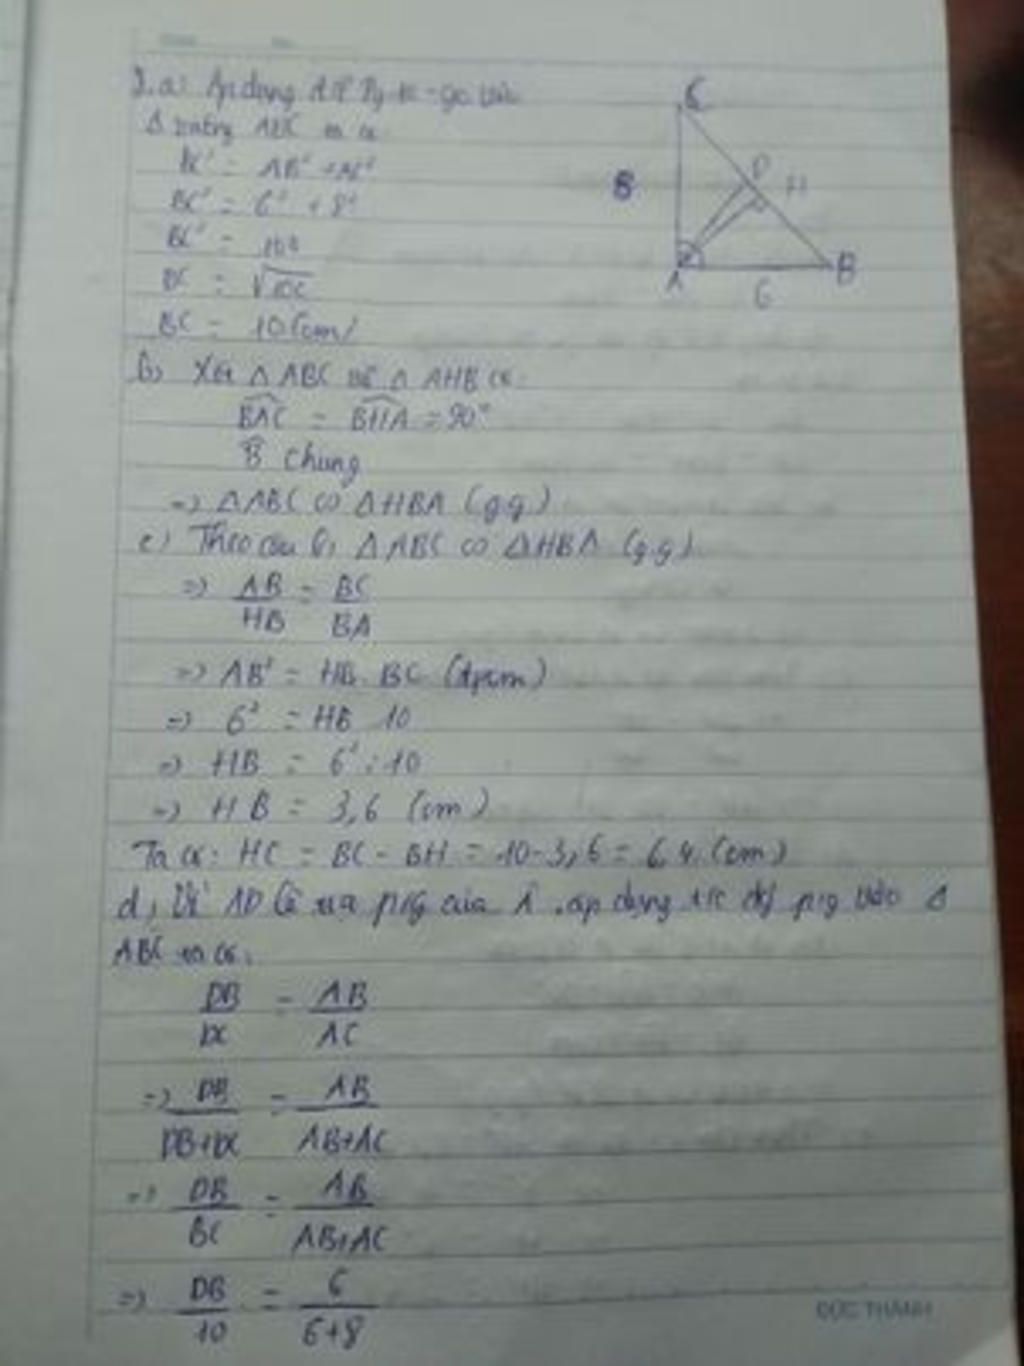 a: Áp dụng đ/l Py-ta-go vào
Δ vuông ABC ta có
BC² = AB² + AC²
BC² = 6² + 8²
BC² = 100
BC = √100
BC = 10 (cm)
C
D
H
8
A
B
6
b) Xét Δ ABC và Δ AHB có:
BAC = BHA = 90°
B chung
=> ΔABC ∽ ΔHBA (g.g)
c) Theo câu b, ΔABC ∽ ΔHBA (g.g)
=> AB/HB = BC/BA
=> AB² = HB. BC (đpcm)
=> 6² = HB 10
=> HB = 6² : 10
=> HB = 3,6 (cm)
Ta có: HC = BC - BH = 10-3,6 = 6,4 (cm)
d, Vì AD là tia p/g của Â, áp dụng t/c đg p/g vào Δ
ABC ta có:
DB/DC = AB/AC
=> DB/DB+DC = AB/AB+AC
=> DB/BC = AB/AB+AC
=> DB/10 = 6/6+8
ĐỨC THÀNH